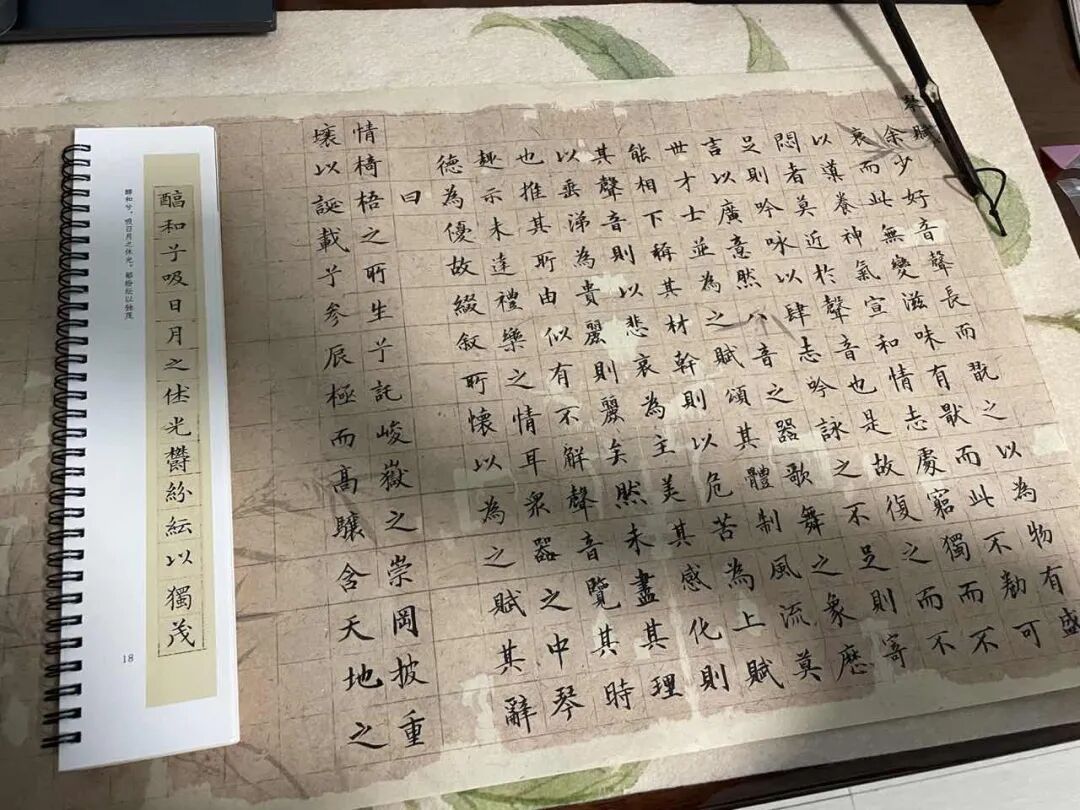 琴賦
余少好音聲長而翫之以為物有盛
衰而此無變滋味有猒而此不勌可
以導養神氣宣和情志處窮獨而不
悶者莫近於聲音也是故復之而不
足則吟咏以肆志吟詠之不足則寄
言以廣意然八音之器歌舞之象歷
世才士並為之賦頌其體制風流莫
能相下稱其材幹則以危苦為上賦
其聲音則以悲哀為主美其感化則
以垂涕為貴麗則麗矣然未盡其理
也推其所由似有不解聲音覽其時
趣示未達禮樂之情耳衆器之中琴
德為優故綴叙所懷以為之賦其辭
曰
情椅梧之所生兮託峻嶽之崇岡披重
壤以誕載兮參辰極而高驤含天地之
醇和兮吸日月之休光鬱紛紜以獨茂
醇和兮，吸日月之休光。郁纷纭以独茂
18